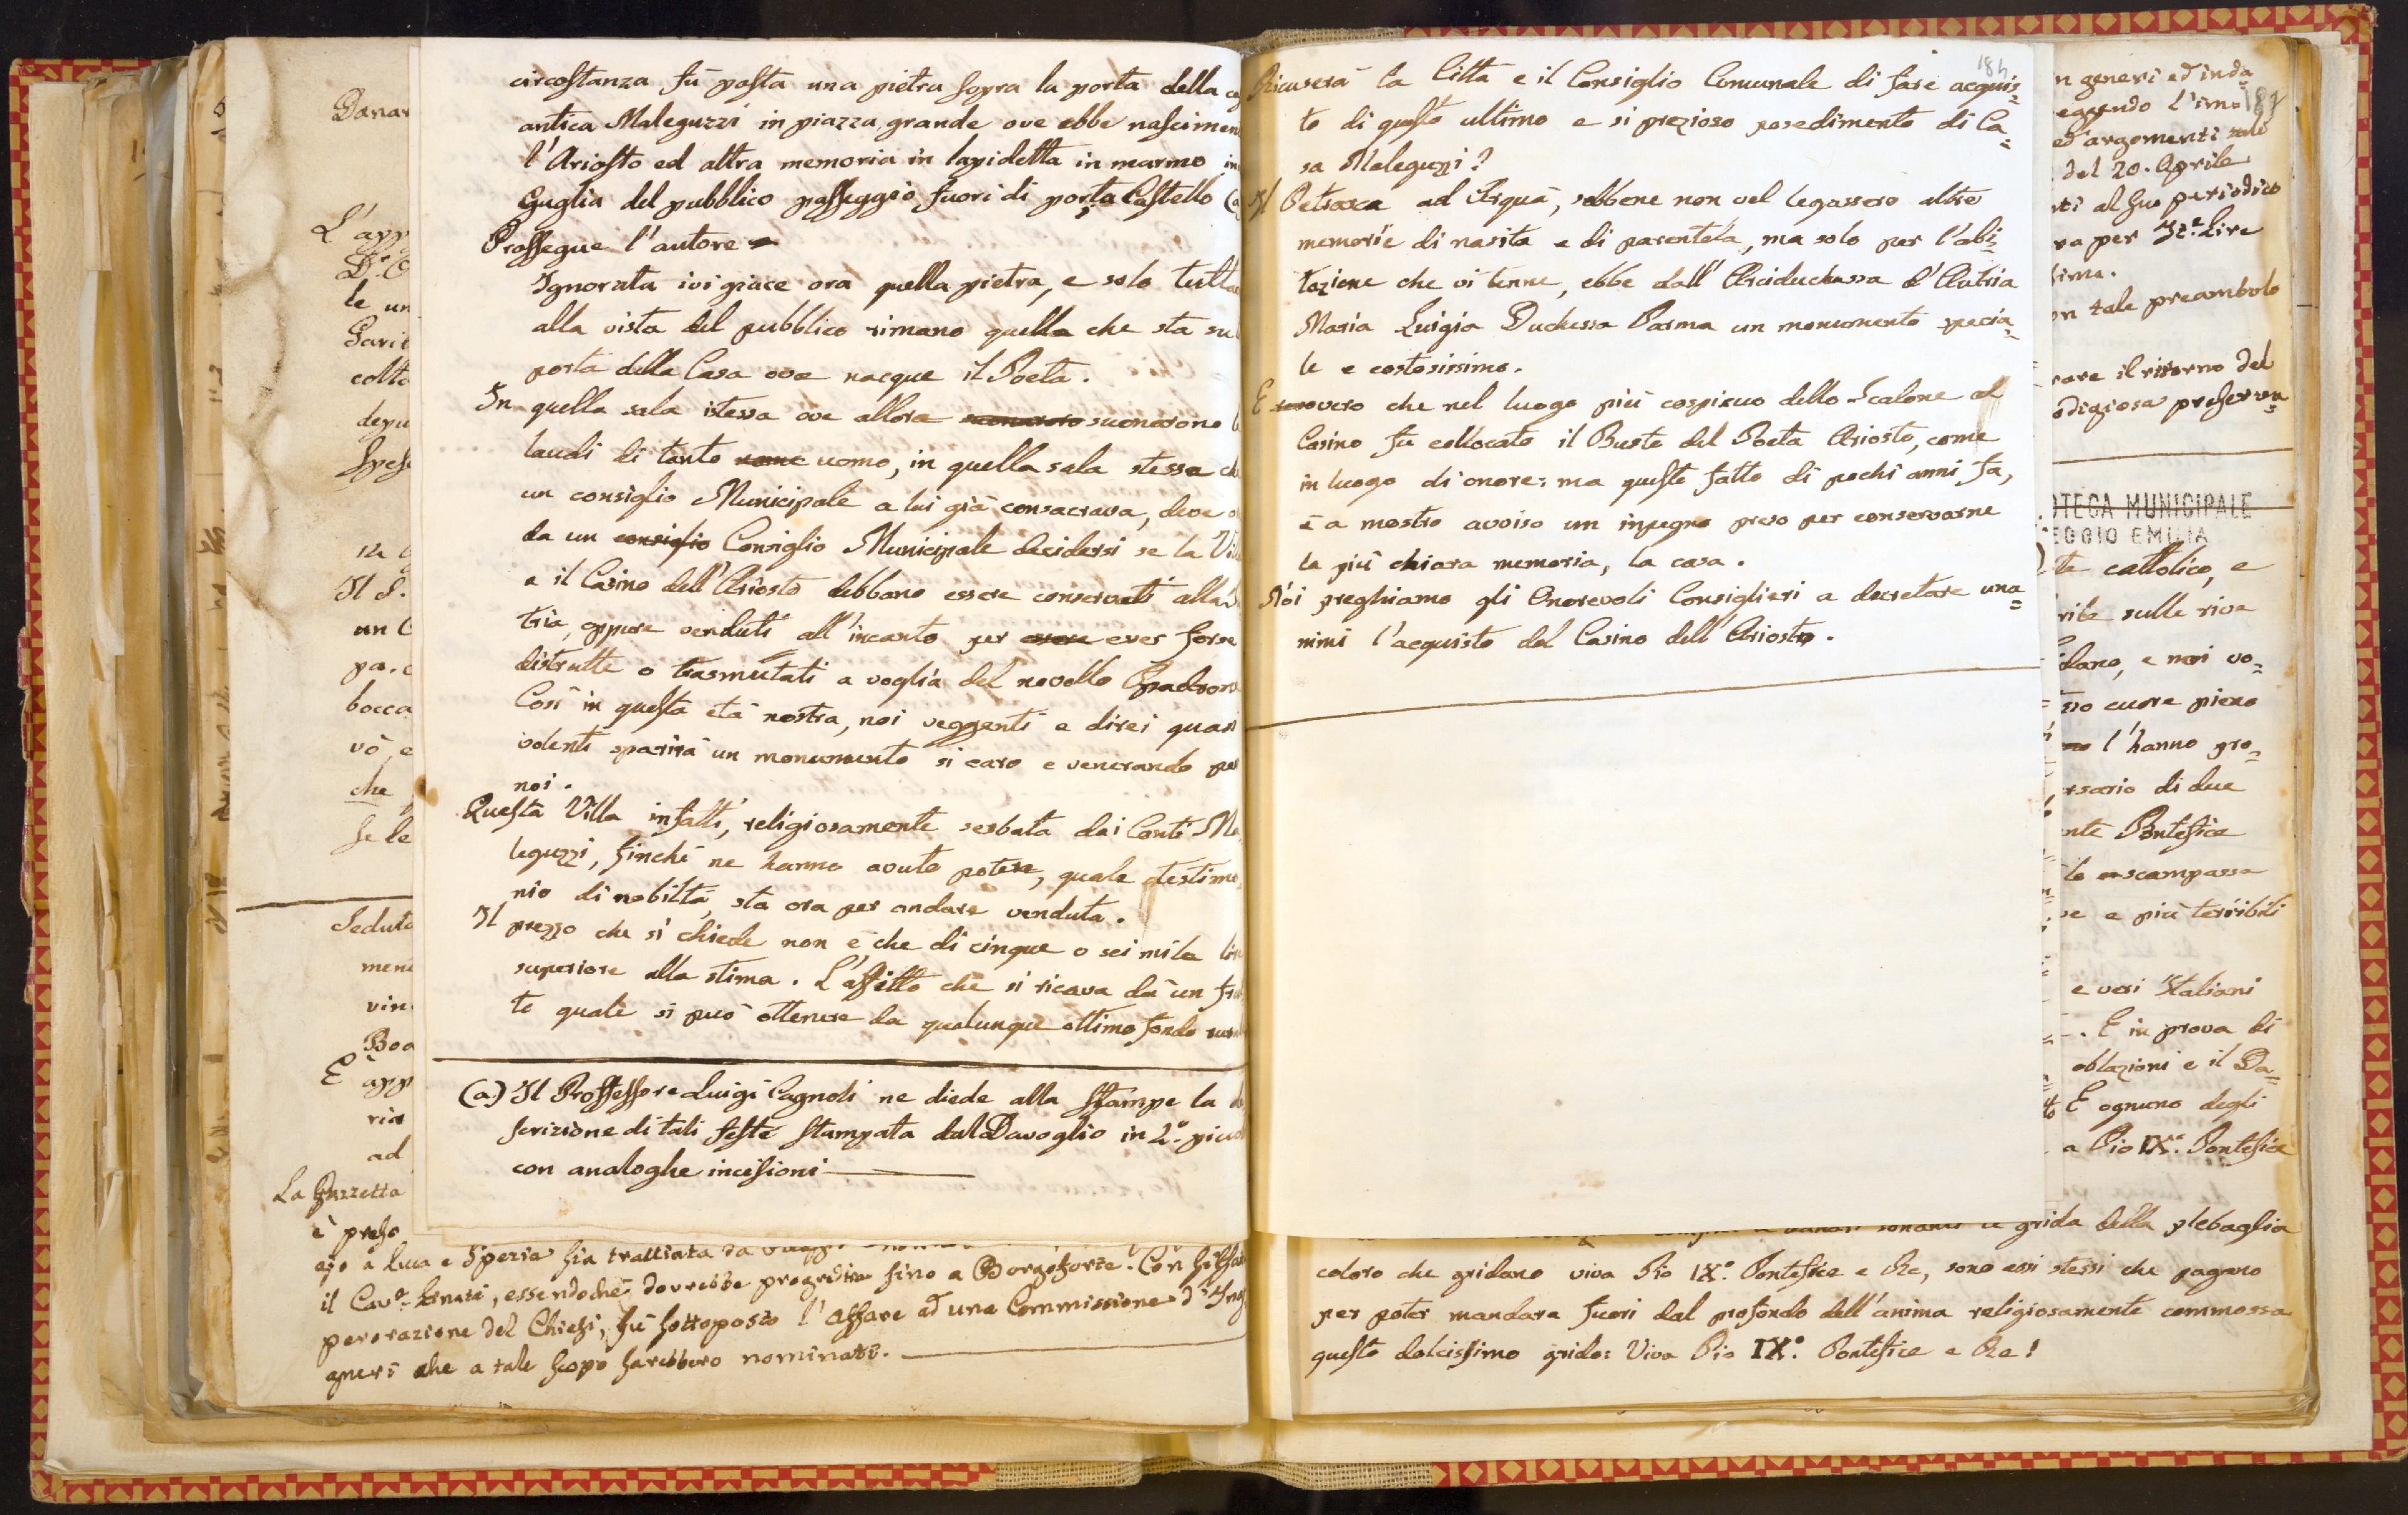 circostanza fù posta una pietra sopra la porta della
antica Maleguzzi in piazza grande ove ebbe nascimen
l'Ariosto ed altra memoria in lapidetta in marmo in
Guglia del pubblico passeggio fuori di porta Castello (a
Prossegue l'autore
Ignorata ivi giace ora quella pietra, e solo
alla vista del pubblico rimane quella che sta su
porta della Casa ove nacque il Poeta.
In quella sala istessa ove allora suonarono suonarono l
laudi di tanto uomo, in quella sala stessa ch
un consiglio Municipale a lui già consacrava, deve o
da un consiglio Consiglio Municipale decidersi se la Vil
e il Casino dell'Ariosto debbano essere conservati alla
tria, oppure venduti all'incanto per esser forse
distrutte o trasmutati a voglia del novello Padrone
Così in questa età nostra, noi veggenti e direi quasi
volenti sparirà un monumento si caro e venerando per
noi.
Questa Villa infatti, religiosamente serbata dai Conti Ma
leguzzi, finchè ne hanno avuto potere, quale testimo
nio di nobiltà, sta ora per andare venduta.
Il prezzo che si chiede non è che di cinque o sei mila lire
superiore alla stima. L'affitto che si ricava dà un fru
to quale si può ottenere da qualunque ottimo fondo
(a) Il Proffessore Luigi Cagnoli ne diede alla Stampe la de
scrizione di tali feste stampata dal Davoglio in 2º. picco
con analoghe incisioni
185
Ricuserà la Città e il Consiglio Comunale di fare acquis=
to di questo ultimo e si prezioso possedimento di Ca=
sa Maleguzzi?
Il Petrarca ad Arquà, sebbene non vel legassero altre
memorie di nascita e di parentela, ma solo per l'abi=
tazione che vi tenne, ebbe dall'Arciduchessa d'Autria
Maria Luigia Duchessa Parma un monumento specia=
le e costosissimo.
E vero che nel luogo più cospicuo dello Scalone al
Casino fu collocato il Busto del Poeta Ariosto, come
in luogo di onore: ma questo fatto di pochi anni fa,
è a nostro avviso un impegno preso per conservarne
la più chiara memoria, la casa.
Noi preghiamo gli Onorevoli Consiglieri a decretare una=
nimi l'acquisto del Casino dell'Ariosto.
Danar
L'app
le un
colto
depu
Spese
na
Il S.
un C
pa. e
bocca
vò, e
che
se le
Seduta
meni
vin
Boa
È app
ria
ad
La Gazzetta
è preso
a Luca e Spezia sia trattata da
il Cavº. essendochè dovrebbe progredire fino a Borgoforte. Con
perorazione del Chiesi, fù sottoposto l'affare ad una Commissione d'Ing
gneri che a tale scopo sarebbero nominati.
n generi ed inda=
187
ed argomenti
del 20. Aprile
ti al suo periodico
ra per It.e Lire
sima.
on tale preambolo
rare il ritorno del
odigiosa preserva=
OTECA MUNICIPALE
EGGIO EMILIA
te cattolico, e
rile sulle rive
idano, e noi vo=
sso cuore pieno
l'hanno pro=
rsario di due
nte Pontefice
lo scampasse
e e più terribili
e veri Italiani
. E in prova di
oblazioni e il Da=
E ognuno degli
a Pio IXº. Pontefice
grida della plebaglia
coloro che gridano viva Pio IXº. Pontefice e Re, sono essi stessi che pagano
per poter mandare fuori dal profondo dell'anima religiosamente commossa
questo dolcissimo grido: Viva Pio IXº. Pontefice e Re!